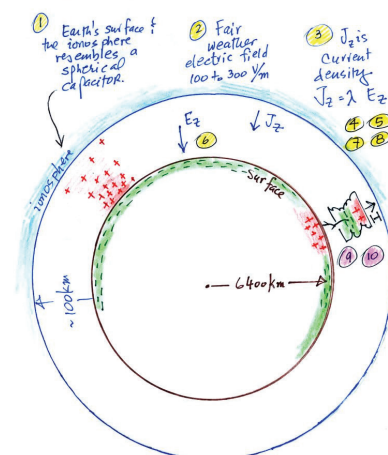 1
Earth's surface &
the ionosphere
resembles a
spherical
capacitor.
2
Fair
weather
electric field
100 to 300 V/m
3
J_z is
current
density
J_z = λ E_z
4 5
7 8
E_z
J_z
6
ionosphere
surface
I
9 10
6400km
~100km